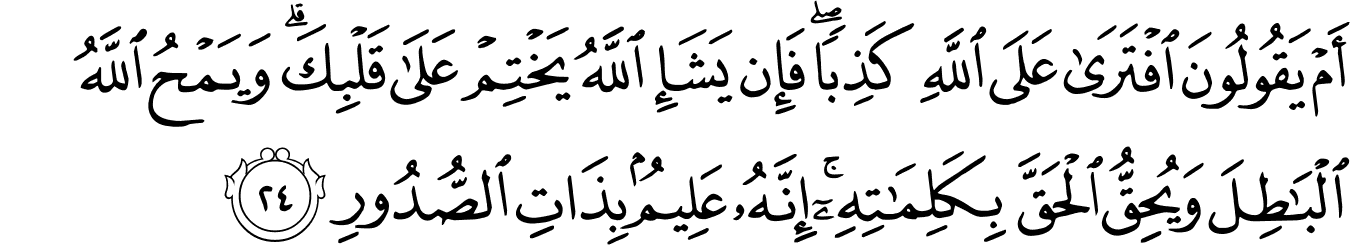 أَمْ يَقُولُونَ ٱفْتَرَىٰ عَلَى ٱللَّهِ كَذِبًا ۖ فَإِن يَشَإِ ٱللَّهُ يَخْتِمْ عَلَىٰ قَلْبِكَ ۗ وَيَمْحُ ٱللَّهُ
ٱلْبَـٰطِلَ وَيُحِقُّ ٱلْحَقَّ بِكَلِمَـٰتِهِۦٓ ۚ إِنَّهُۥ عَلِيمٌۢ بِذَاتِ ٱلصُّدُورِ ٢٤